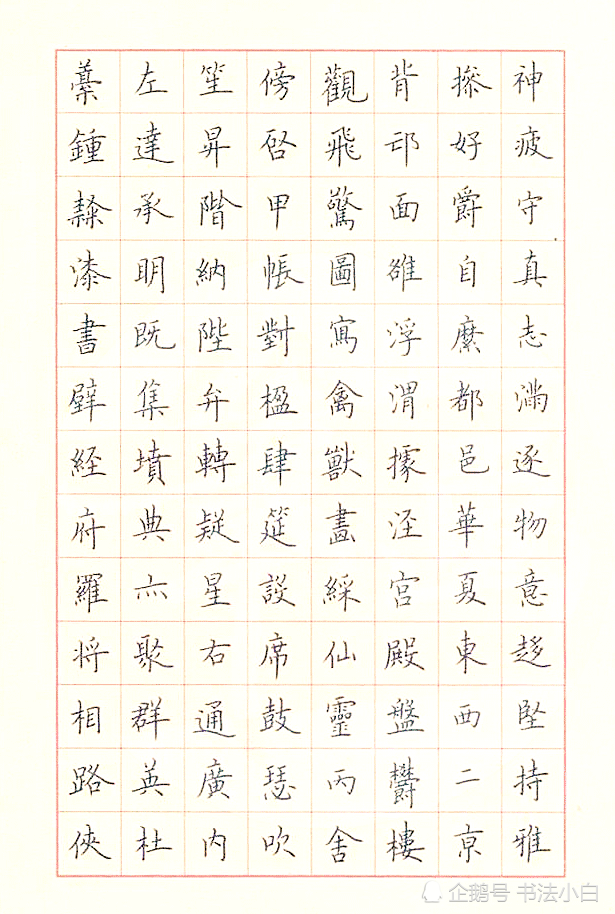 神疲守真志滿逐物意趍堅持雅
操好爵自縻都邑華夏東西二亰
背邙面雒浮渭據涇宮殿盤欝樓
觀飛驚圖寫禽獸畫綵仙靈丙舍
傍啓甲帳對楹肆筵設席鼓瑟吹
笙昇階納陛弁轉疑星右通廣内
左達承明既集墳典亦聚群英杜
藁鍾隸漆書壁経府羅将相路俠
企鹅号 书法小白